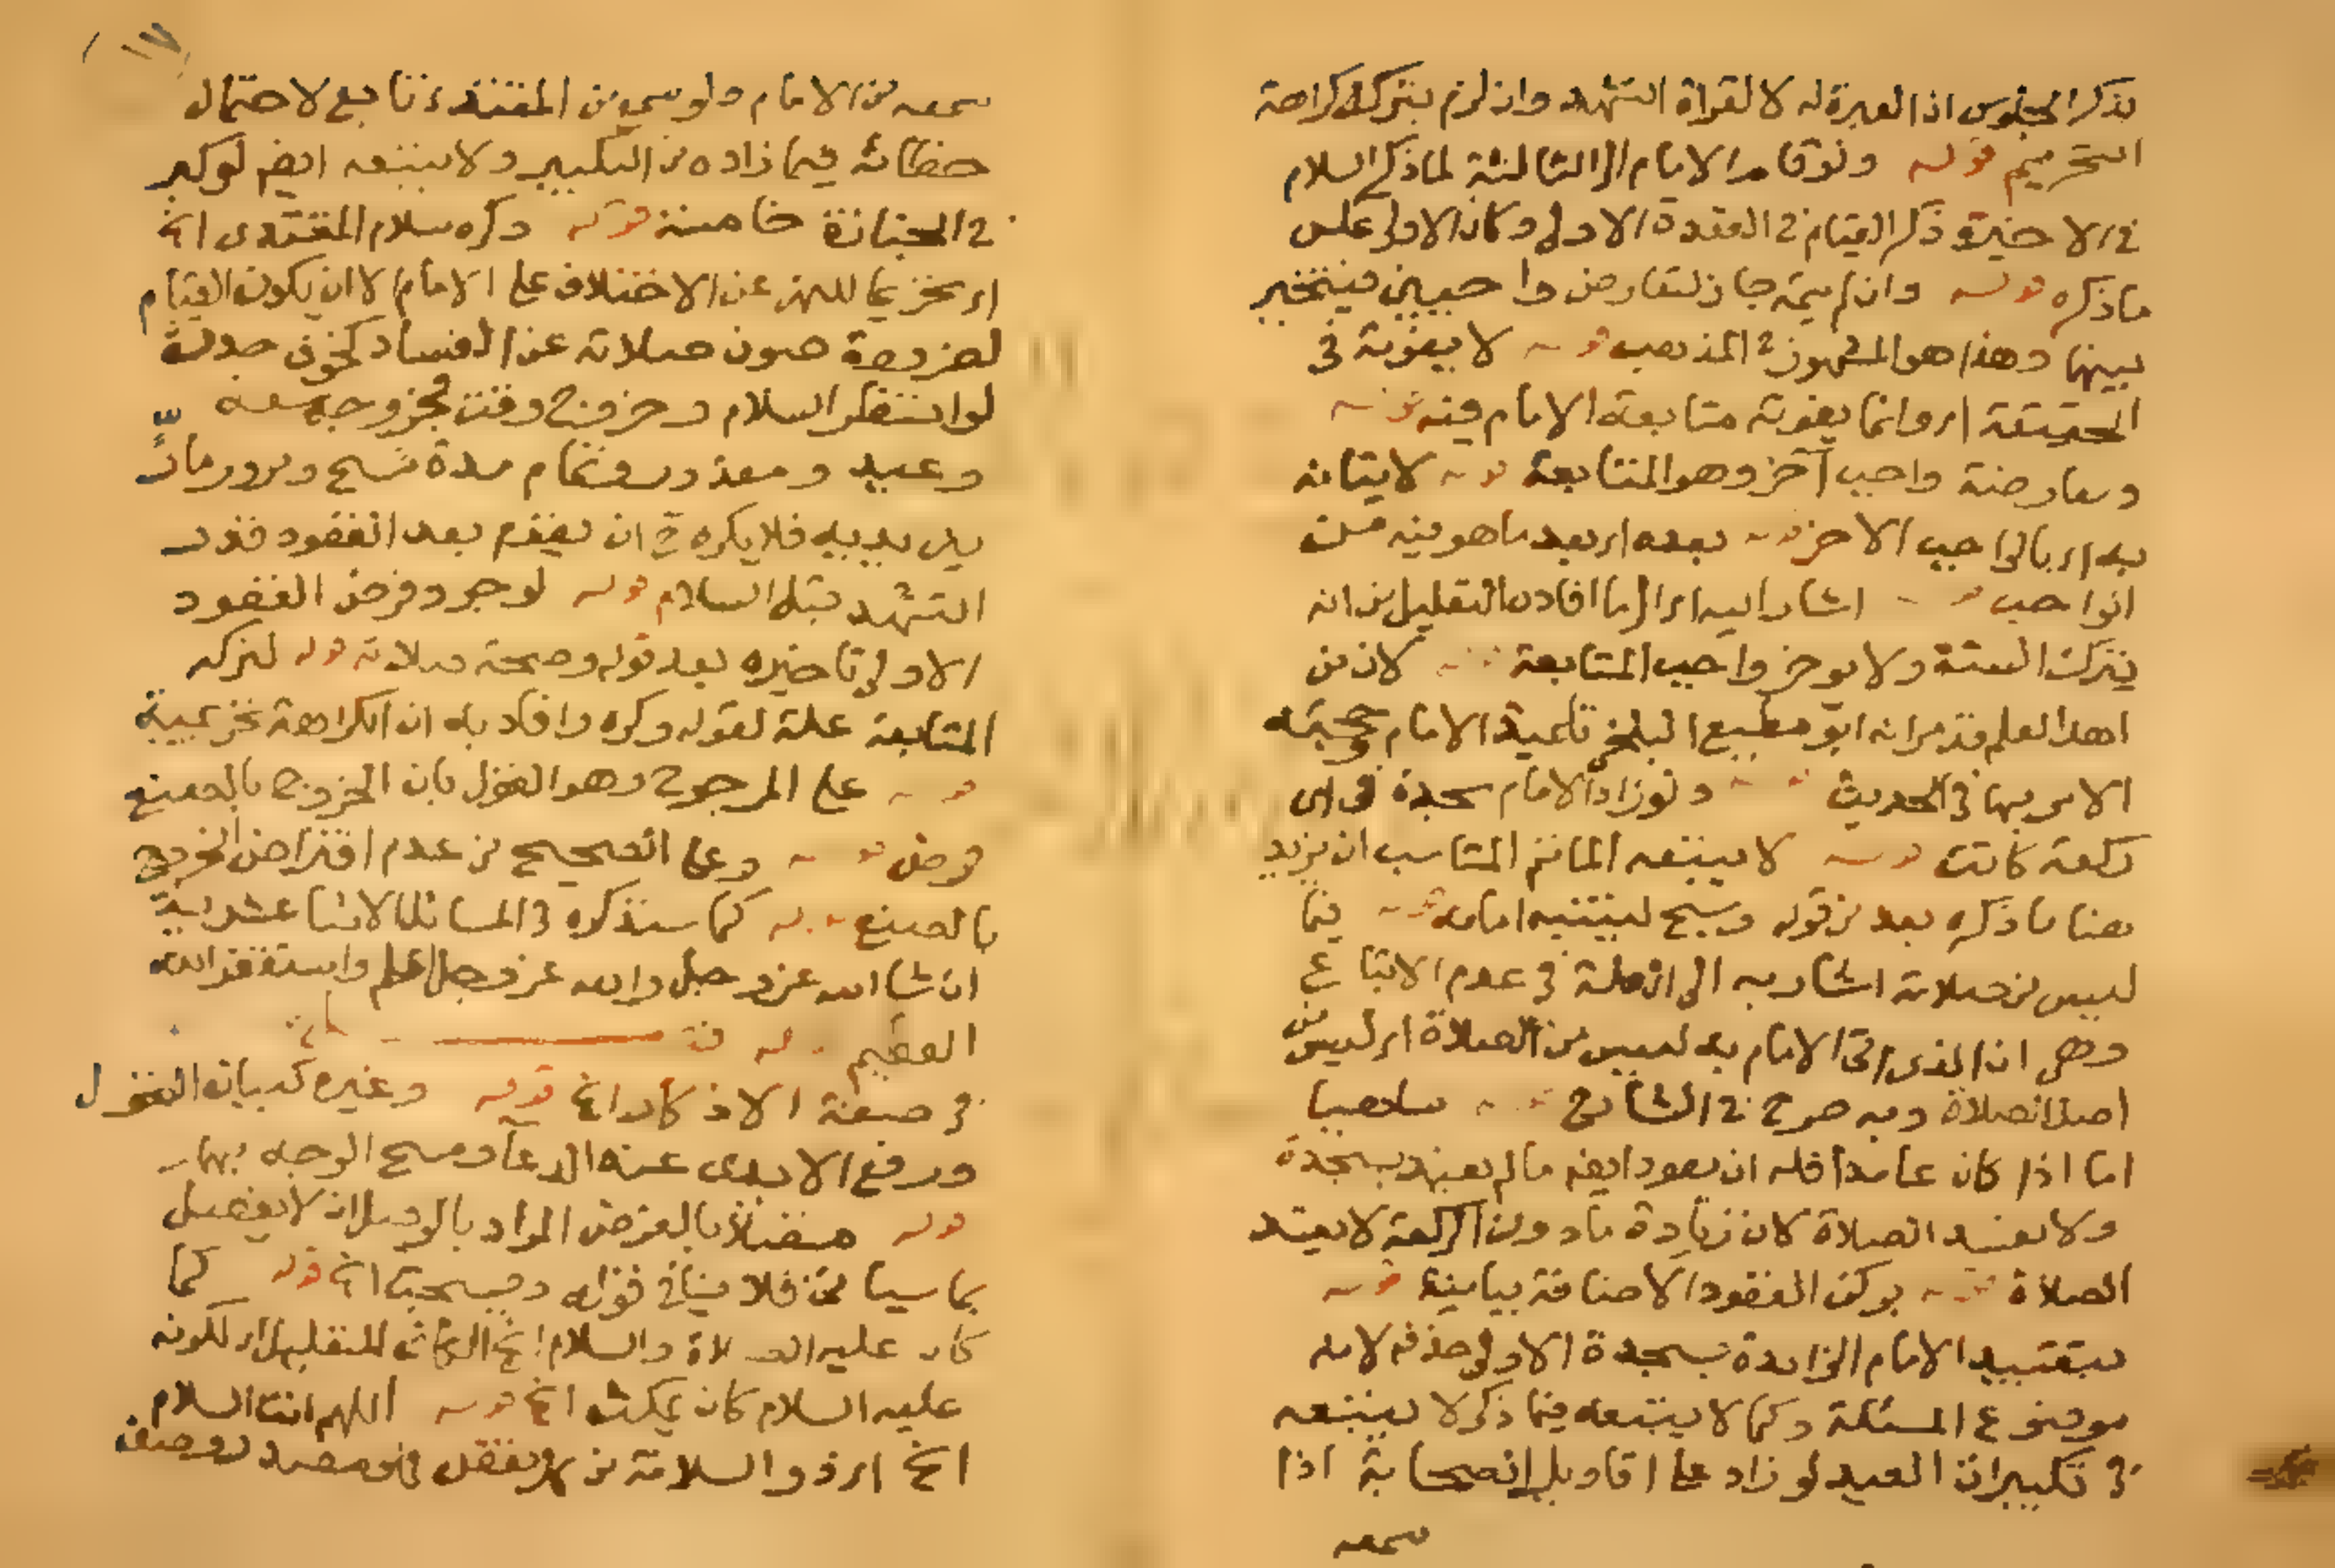 تذكر الجلوس اذ العبرة له لا لقراة التشهد وان لزم بتركه كراهة
التحريم قوله ولو قام الامام الى الثالثة لما ذكر السلام
في الاخيرة ذكر القيام في القعدة الاولى وكان الاولى عكس
ما ذكره قوله وان لم يتمه جاز لتعارض واجبين فيتخير
بينهما وهذا هو المشهور في المذهب قوله لا يفوته في
الحقيقة اى وانما يفوته متابعة الامام فيه قوله
ومعارضة واجب آخر وهو المتابعة قوله لا يتانه
به اى بالواجب الاخر قوله بعده اى بعد ما هو فيه من
الواجب قوله اشار اليه اى الى ما افاده التعليل من انه
يترك السنة ولا يوخر واجب المتابعة قوله لان من
اهل العلم قد مر انه ابو مطيع البلخي تلميذ الامام وحجته
الامر بها في الحديث قوله ولو زاد الامام سجدة في اى
ركعة كانت قوله لا يتبعه الماتم المناسب ان يزيد
هنا ما ذكره بعد من قوله ويسبح ليتنبه امامه قوله فيما
ليس من صلاته اشار به الى العلة في عدم الاتباع
وهى ان الذى اتى الامام به ليس من الصلاة اى ليس من
اصل الصلاة وبه صرح في الثانى قوله ساهيا
اما اذا كان عامدا فله ان يعود ايضا ما لم يقيد بسجدة
ولا تفسد الصلاة لان زيادة ما دون الركعة لا يفسد
الصلاة قوله بركن القعود الاضافة بيانية قوله
بتقييد الامام الزايدة بسجدة الاولى حذفه لانه
موضوع المسئلة وكما لا يتبعه فيما ذكر لا يتبعه
في تكبيرات العيد لو زاد على اقاويل الصحابة اذا
سمعه
سمعه من الامام ولو سمع من المقتدى تابع لاحتمال
خطائه فيما زاده من التكبير ولا يتبعه ايضا لو كبر
في الجنازة خامسة قوله وكره سلام المقتدى الخ
اى تحريما للنهى عن الاختلاف على الامام الا ان يكون القيام
لضرورة صون صلاته عن الفساد كخوف حدث
لو انتظر السلام وخروج وقت فجر وجمعة
وعيد ومعذور وتمام مدة مسح ومرور مار
بين يديه فلا يكره ح ان يقوم بعد القعود قدر
التشهد قبل السلام قوله لوجود فرض القعود
الاولى تاخيره بعد قوله وصحة صلاته قوله لتركه
المتابعة علة لقوله وكره وافاد به ان الكراهة تحريمية
قوله على المرجوح وهو القول بان الخروج بالصنع
فرض قوله وعلى الصحيح من عدم افتراض الخروج
بالصنع قوله كما سنذكره في المسائل الاثنا عشرية
ان شا الله عز وجل والله عز وجل اعلم واستغفر الله
العظيم قوله
في صفة الاذكار الخ قوله وغيره كبيان الفضل
ورفع الايدى عند الدعا ومسح الوجه بها
قوله متصلا بالفرض المراد بالوصل ان لا يفصل
بما سيا فلا ينافى قوله ويستحب الخ قوله كما
كان عليه الصلاة والسلام الخ الكاف للتعليل اى لكونه
عليه السلام كان يمكث الخ قوله اللهم انت السلام
الخ اى ذو السلامة من كل نقص فهو مصدر وصف